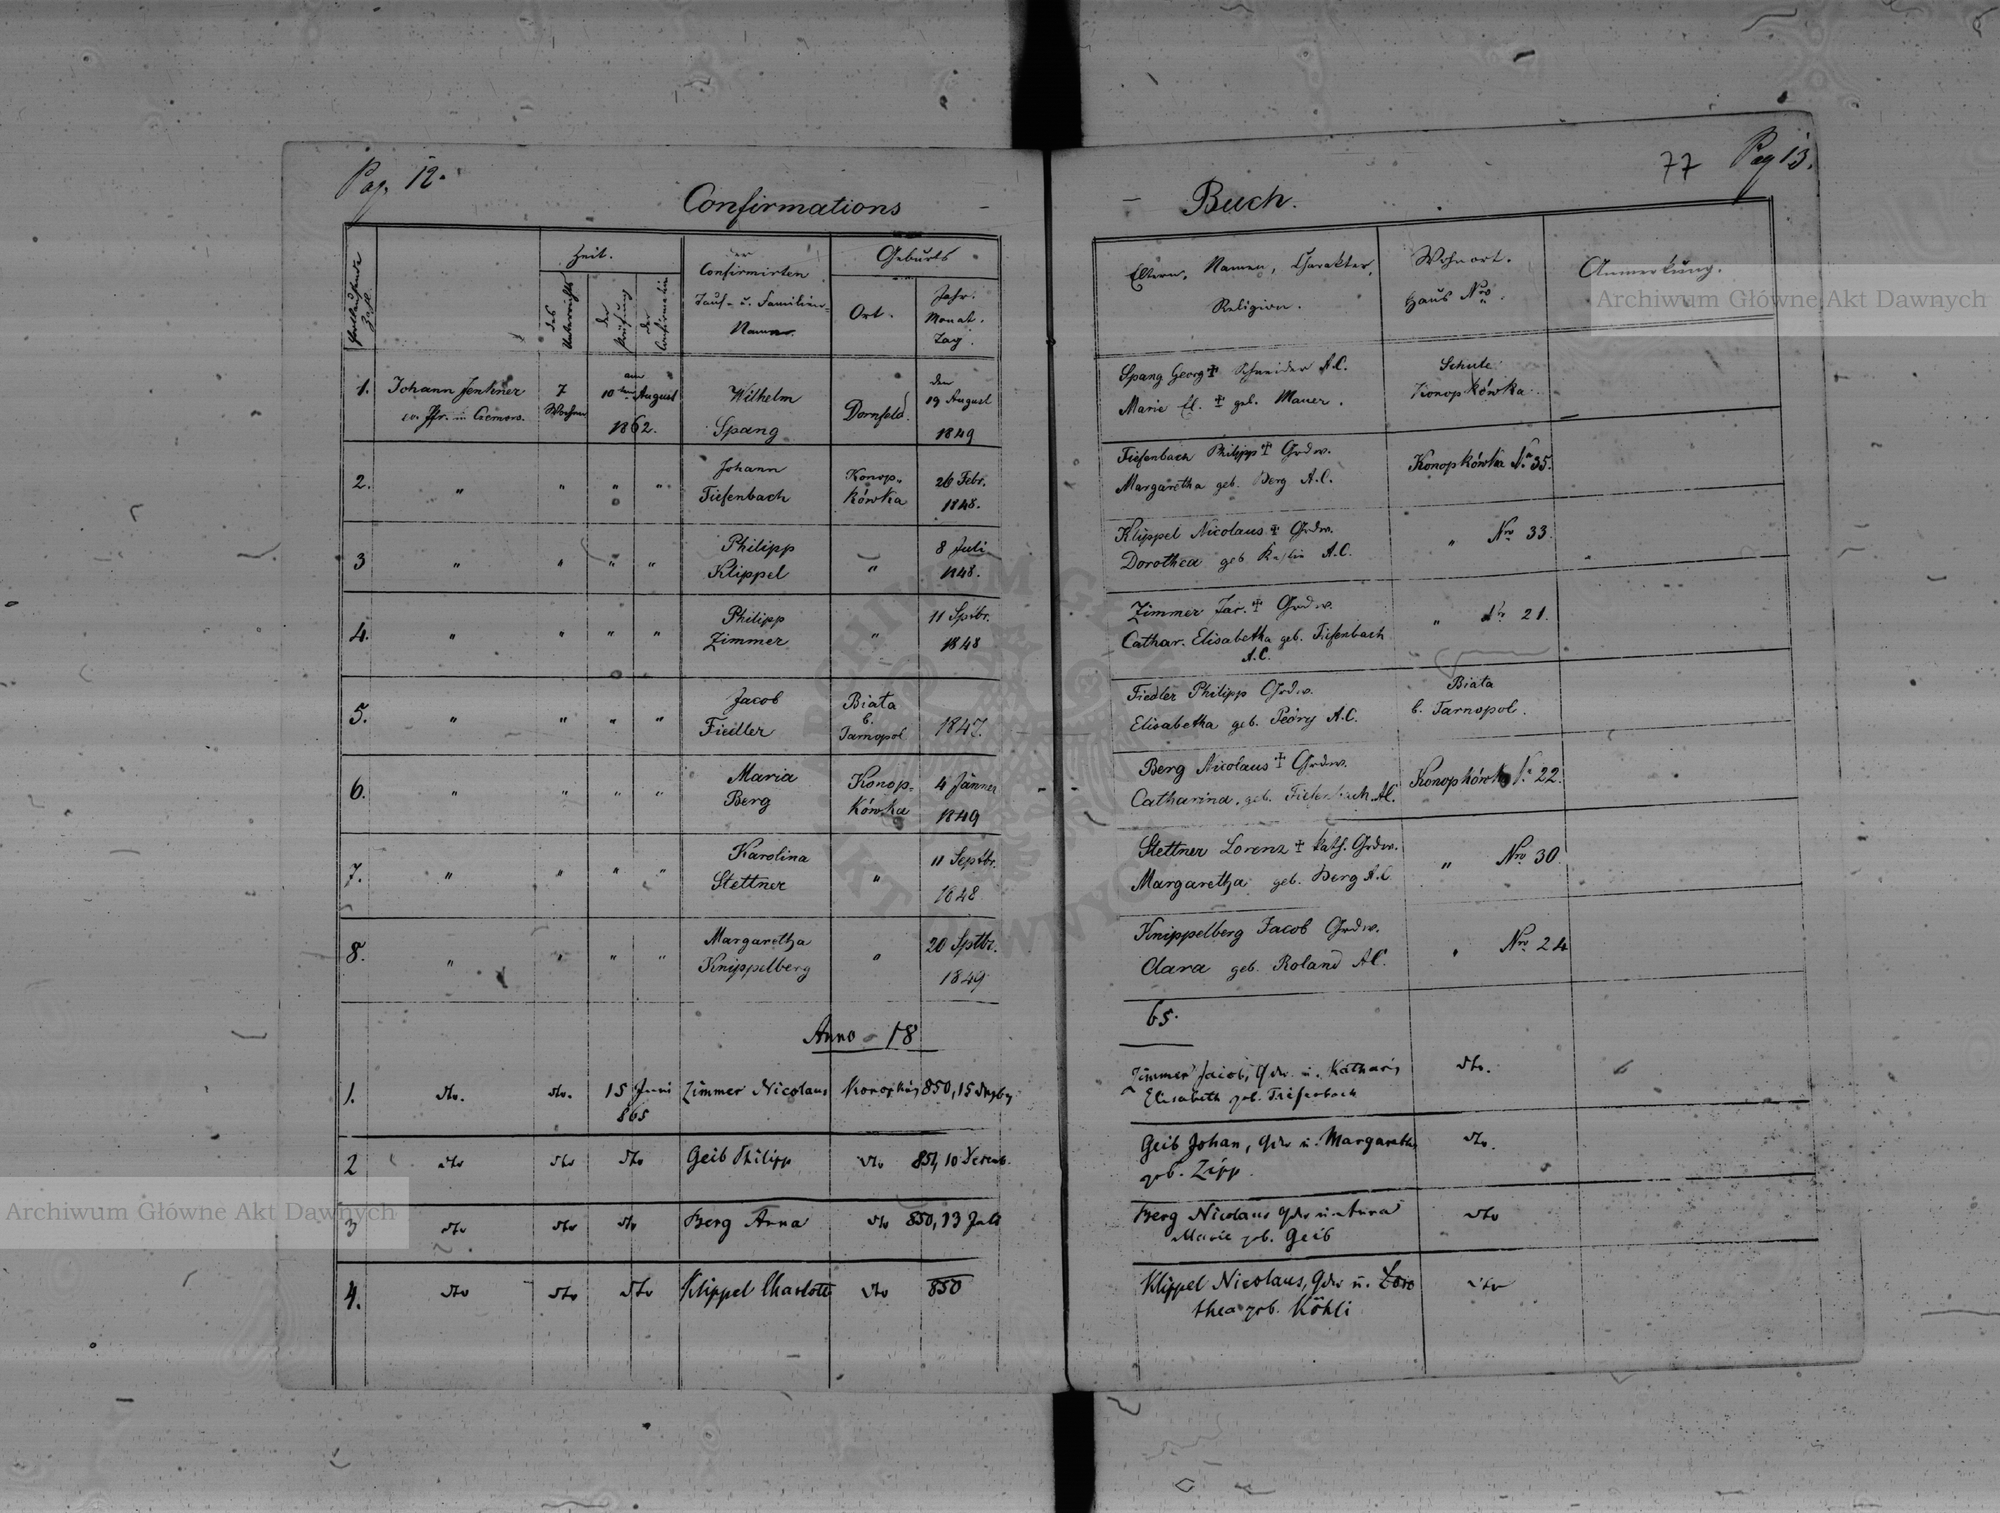 Pag. 12.
77 Pag 13.
Confirmations - - Buch.
Fortlaufende Zahl.
Zeit.
des Unterrichts
der Prüfung
der Confirmation
der
Confirmirten
Tauf- u. Familien-
Namen.
Geburts
Ort.
Jahr.
Monat.
Tag.
Eltern, Namen, Charakter,
Religion.
Wohnort.
Haus Nro.
Anmerkung.
1. Johann Jenkner 7 am 10ten August Wilhelm den
Wochen 1862. Spang Dornfeld 19 August
1849
Spang Georg ✝ Schneider A.C. Schule
Marie El. ✝ geb. Mauer. Konopkówka
2. " " " " Johann Konop- 26 Febr.
Tiefenbach kówka 1848.
Tiefenbach Philipp ✝ Grdw. Konopkówka No 35.
Margaretha geb. Berg A.C.
3 " " " " Philipp " 8 Juli
Klippel 1848.
Klippel Nicolaus ✝ Grdw. " Nro 33.
Dorothea geb. A.C.
4. " " " " Philipp " 11 Sptbr.
Zimmer 1848
Zimmer Jac. ✝ Grdw. " Nr. 21.
Cathar. Elisabetha geb. Tiefenbach
A.C.
5. " " " " Jacob Biała
Fiedler b. Tarnopol 1847.
Fiedler Philipp Grdw. Biała
Elisabetha geb. Pedry A.C. b. Tarnopol.
6. " " " " Maria Konop- 4 Jänner
Berg kówka 1849
Berg Nicolaus ✝ Grdw. Konopkówka No 22.
Catharina geb. Tiefenbach A.C.
7. " " " " Karolina " 11 Septbr.
Stettner 1848
Stettner Lorenz ✝ kath. Grdw. " Nro 30.
Margaretha geb. Berg A.C
8. " " " " Margaretha " 20 Sptbr.
Knippelberg 1849
Knippelberg Jacob Grdw. " Nro 24
Clara geb. Roland A.C.
Anno - 18 65.
1. dto. dto. 15 Juni Zimmer Nicolaus 850, 15
865
Zimmer Jacob, Gdw. u. Kathar. dto.
Elisabeth geb. Tiefenbach
2 dto dto dto Geib Philipp dto 851, 10 Decemb.
Geib Johan, Gdw u. Margaretha dto.
geb. Zipp.
3 dto dto dto Berg Anna dto 850, 13 Juli
Berg Nicolaus Gdw u. Anna dto
Marie geb. Geib
4. dto dto dto Klippel Charlotte dto 850
Klippel Nicolaus, Gdw u. Doro dto
thea geb. Köhli
Archiwum Główne Akt Dawnych
Archiwum Główne Akt Dawnych
ARCHIWUM GŁÓWNE AKT DAWNYCH